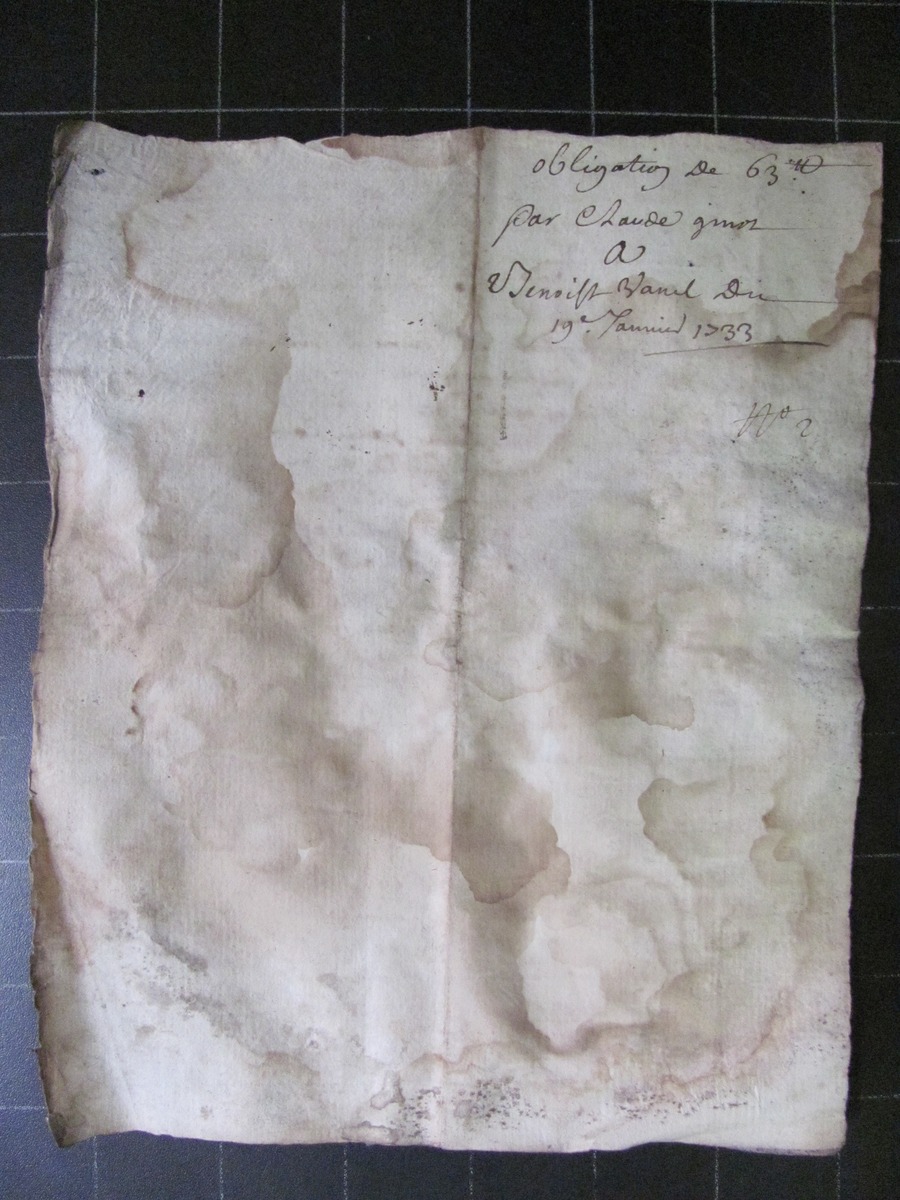 obligation de 63 ₶
par Claude ginot
A
Benoist Vanel du
19e. Janvier 1733
No 2